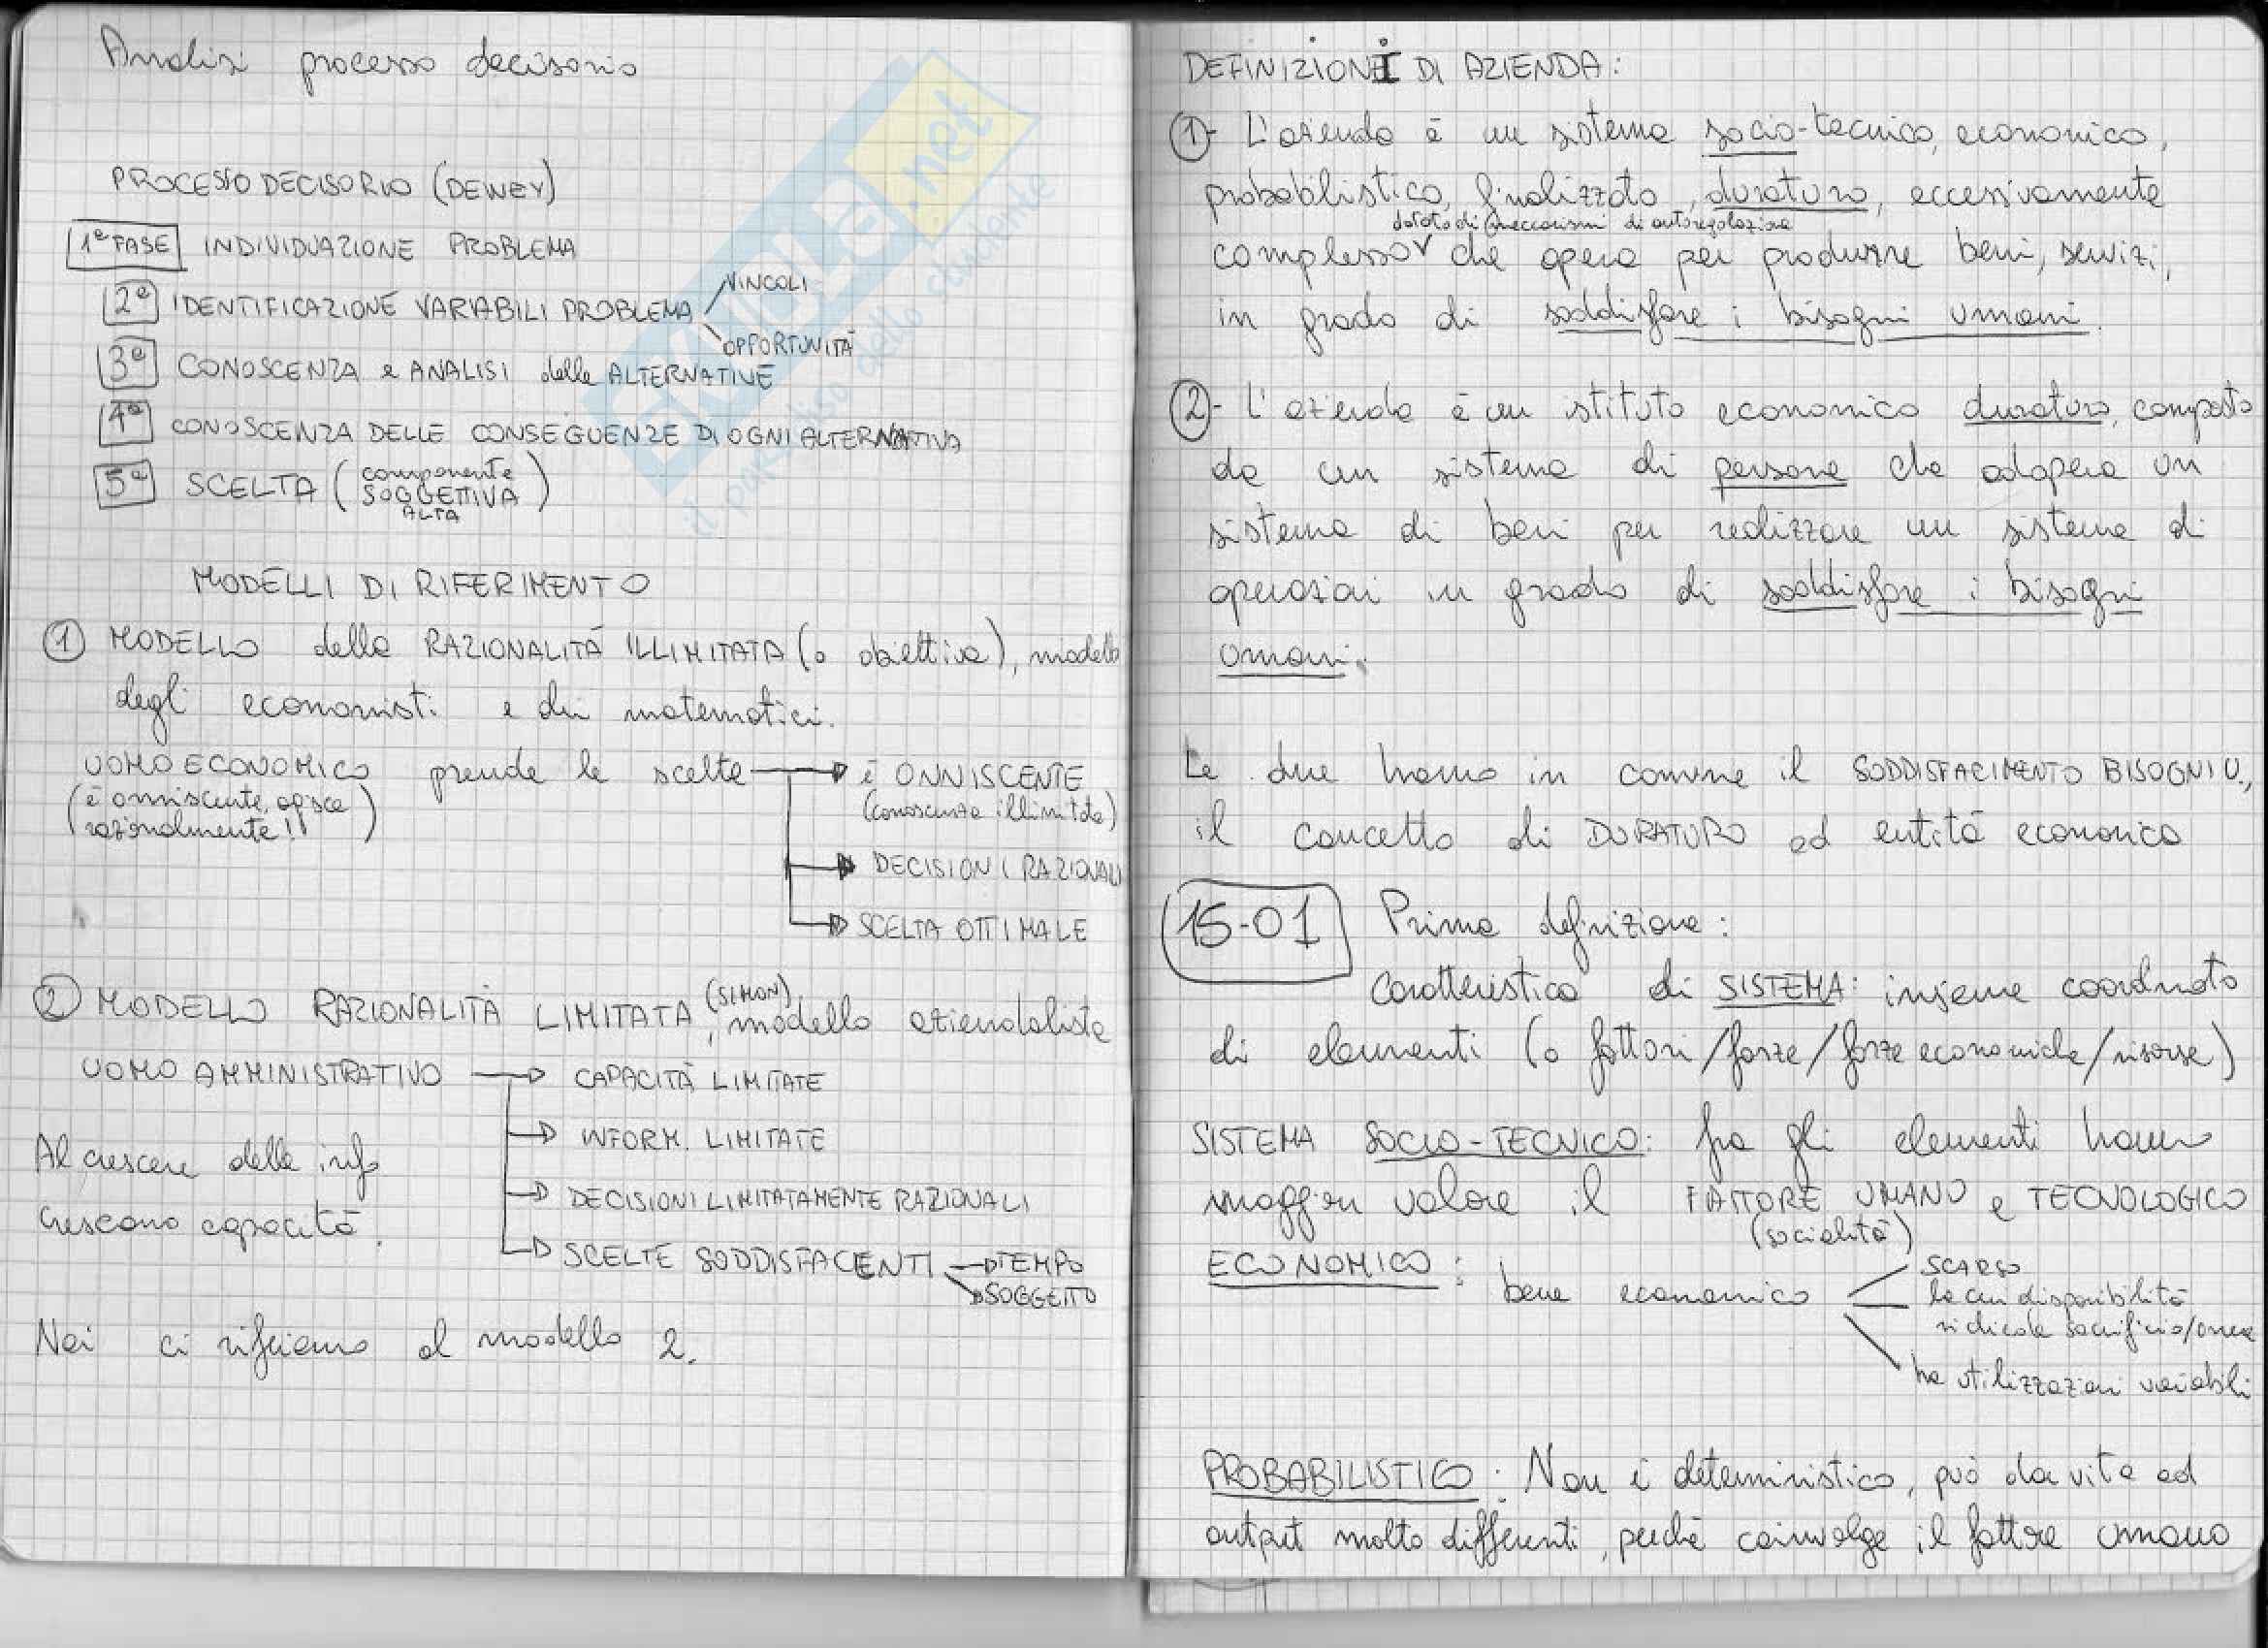 Analisi processo decisorio
PROCESSO DECISORIO (DEWEY)
1ª FASE INDIVIDUAZIONE PROBLEMA
2ª IDENTIFICAZIONE VARIABILI PROBLEMA
VINCOLI
OPPORTUNITÀ
3ª CONOSCENZA e ANALISI delle ALTERNATIVE
4ª CONOSCENZA DELLE CONSEGUENZE DI OGNI ALTERNATIVA
5ª SCELTA (componente SOGGETTIVA ALTA)
MODELLI DI RIFERIMENTO
① MODELLO della RAZIONALITÀ ILLIMITATA (o obiettiva), modello
degli economisti e dei matematici.
UOMO ECONOMICO prende le scelte → è ONNISCENTE
(è onniscente, agisce
razionalmente!!)
(conoscenza illimitata)
→ DECISIONI RAZIONALI
→ SCELTA OTTIMALE
② MODELLO RAZIONALITÀ LIMITATA (SIMON), modello aziendalista
UOMO AMMINISTRATIVO → CAPACITÀ LIMITATE
→ INFORM. LIMITATE
→ DECISIONI LIMITATAMENTE RAZIONALI
→ SCELTE SODDISFACENTI → TEMPO
→ SOGGETTO
Al crescere delle info
crescono capacità.
Noi ci rifacciamo al modello 2.
DEFINIZIONI DI AZIENDA:
①- L'azienda è un sistema socio-tecnico, economico,
probabilistico, finalizzato, duraturo, eccessivamente
dotato di meccanismi di autoregolazione
complesso che opera per produrre beni, servizi,
in grado di soddisfare i bisogni umani.
②- L'azienda è un istituto economico duraturo, composto
da un sistema di persone che adopera un
sistema di beni per realizzare un sistema di
operazioni in grado di soddisfare i bisogni
umani.
Le due hanno in comune il SODDISFACIMENTO BISOGNI U.,
il concetto di DURATURO ed entità economica
15-01 Prima definizione:
Caratteristica di SISTEMA: insieme coordinato
di elementi (o fattori/forze/forze economiche/risorse)
SISTEMA SOCIO-TECNICO: fra gli elementi hanno
maggior valore il FATTORE UMANO e TECNOLOGICO
(socialità)
ECONOMICO: bene economico
SCARSO
la cui disponibilità
richiede sacrificio/onere
ha utilizzazioni variabili
PROBABILISTICO: Non è deterministico, può dar vita ad
output molto differenti, perché coinvolge il fattore umano
SKUOLA.net
il paradiso dello studente